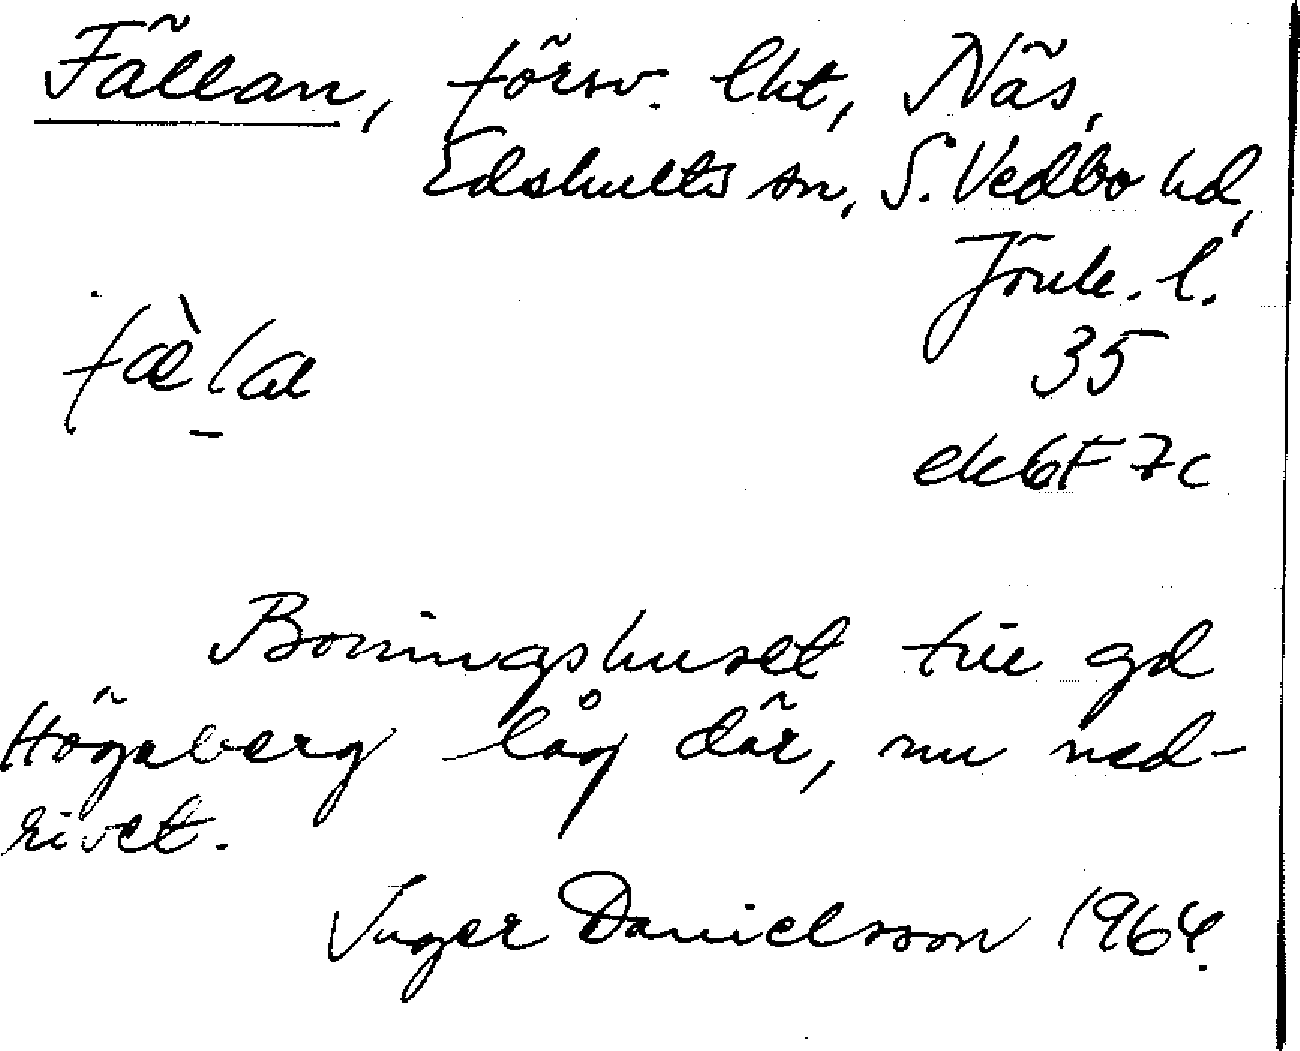 Fällan, försv. lht, Näs,
Edshults sn, S. Vedbo hd,
Jönk. l.
fæ̀la
35
ek 6F 7c
Boningshuset till gd
Högaberg låg där, nu ned-
rivet.
Inger Danielsson 1964.